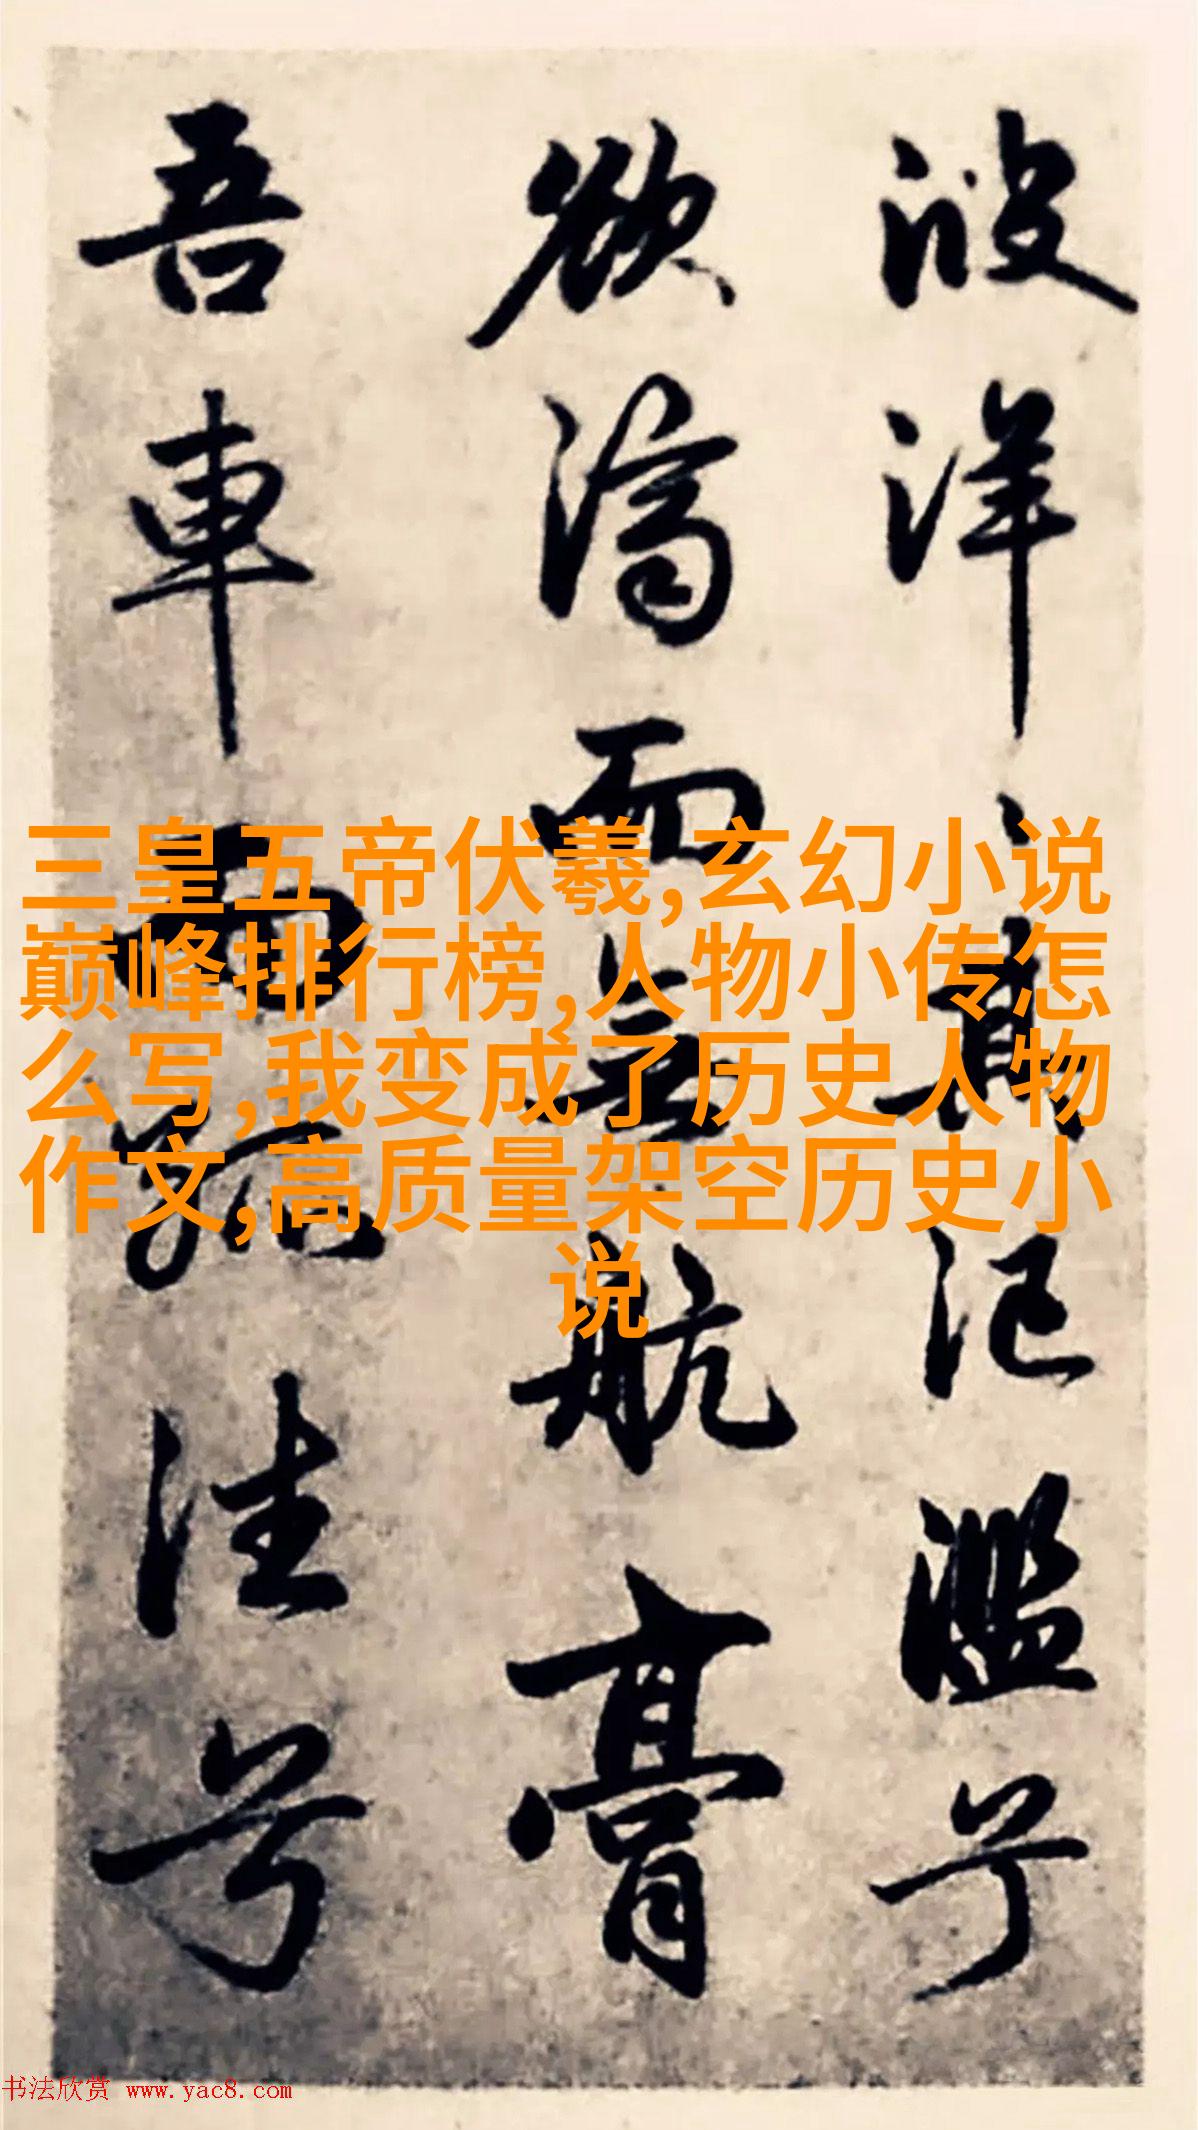 洋氾濫兮
欲濟而無航膏
吾車而往兮
三皇五帝伏羲,玄幻小说
巅峰排行榜,人物小传怎
么写,我变成了历史人物
作文,高质量架空历史小
说
书法欣赏 www.yac8.com